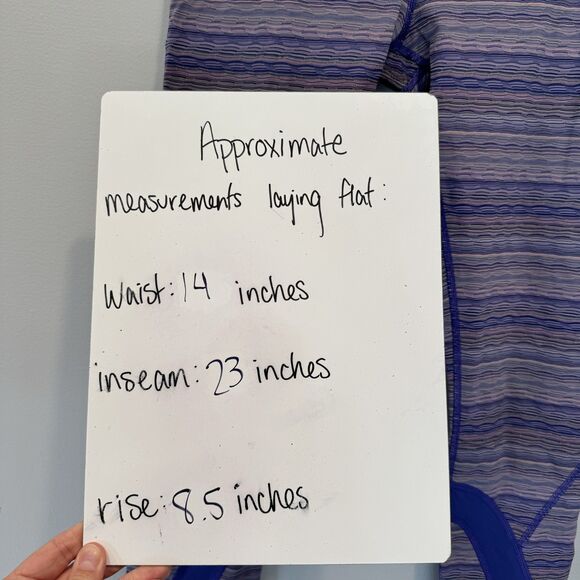 Approximate
measurements laying flat:
Waist: 14 inches
inseam: 23 inches
rise: 8.5 inches